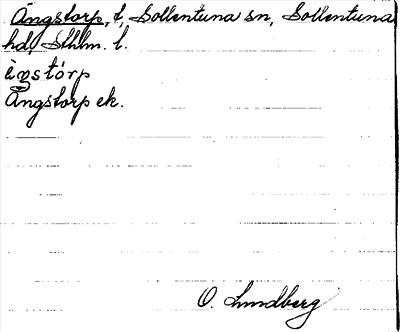 Ängstorp, t, Sollentuna sn, Sollentuna
hd, Sthlm. l.
ängstórp
Ängstorp ek.
O. Lundberg